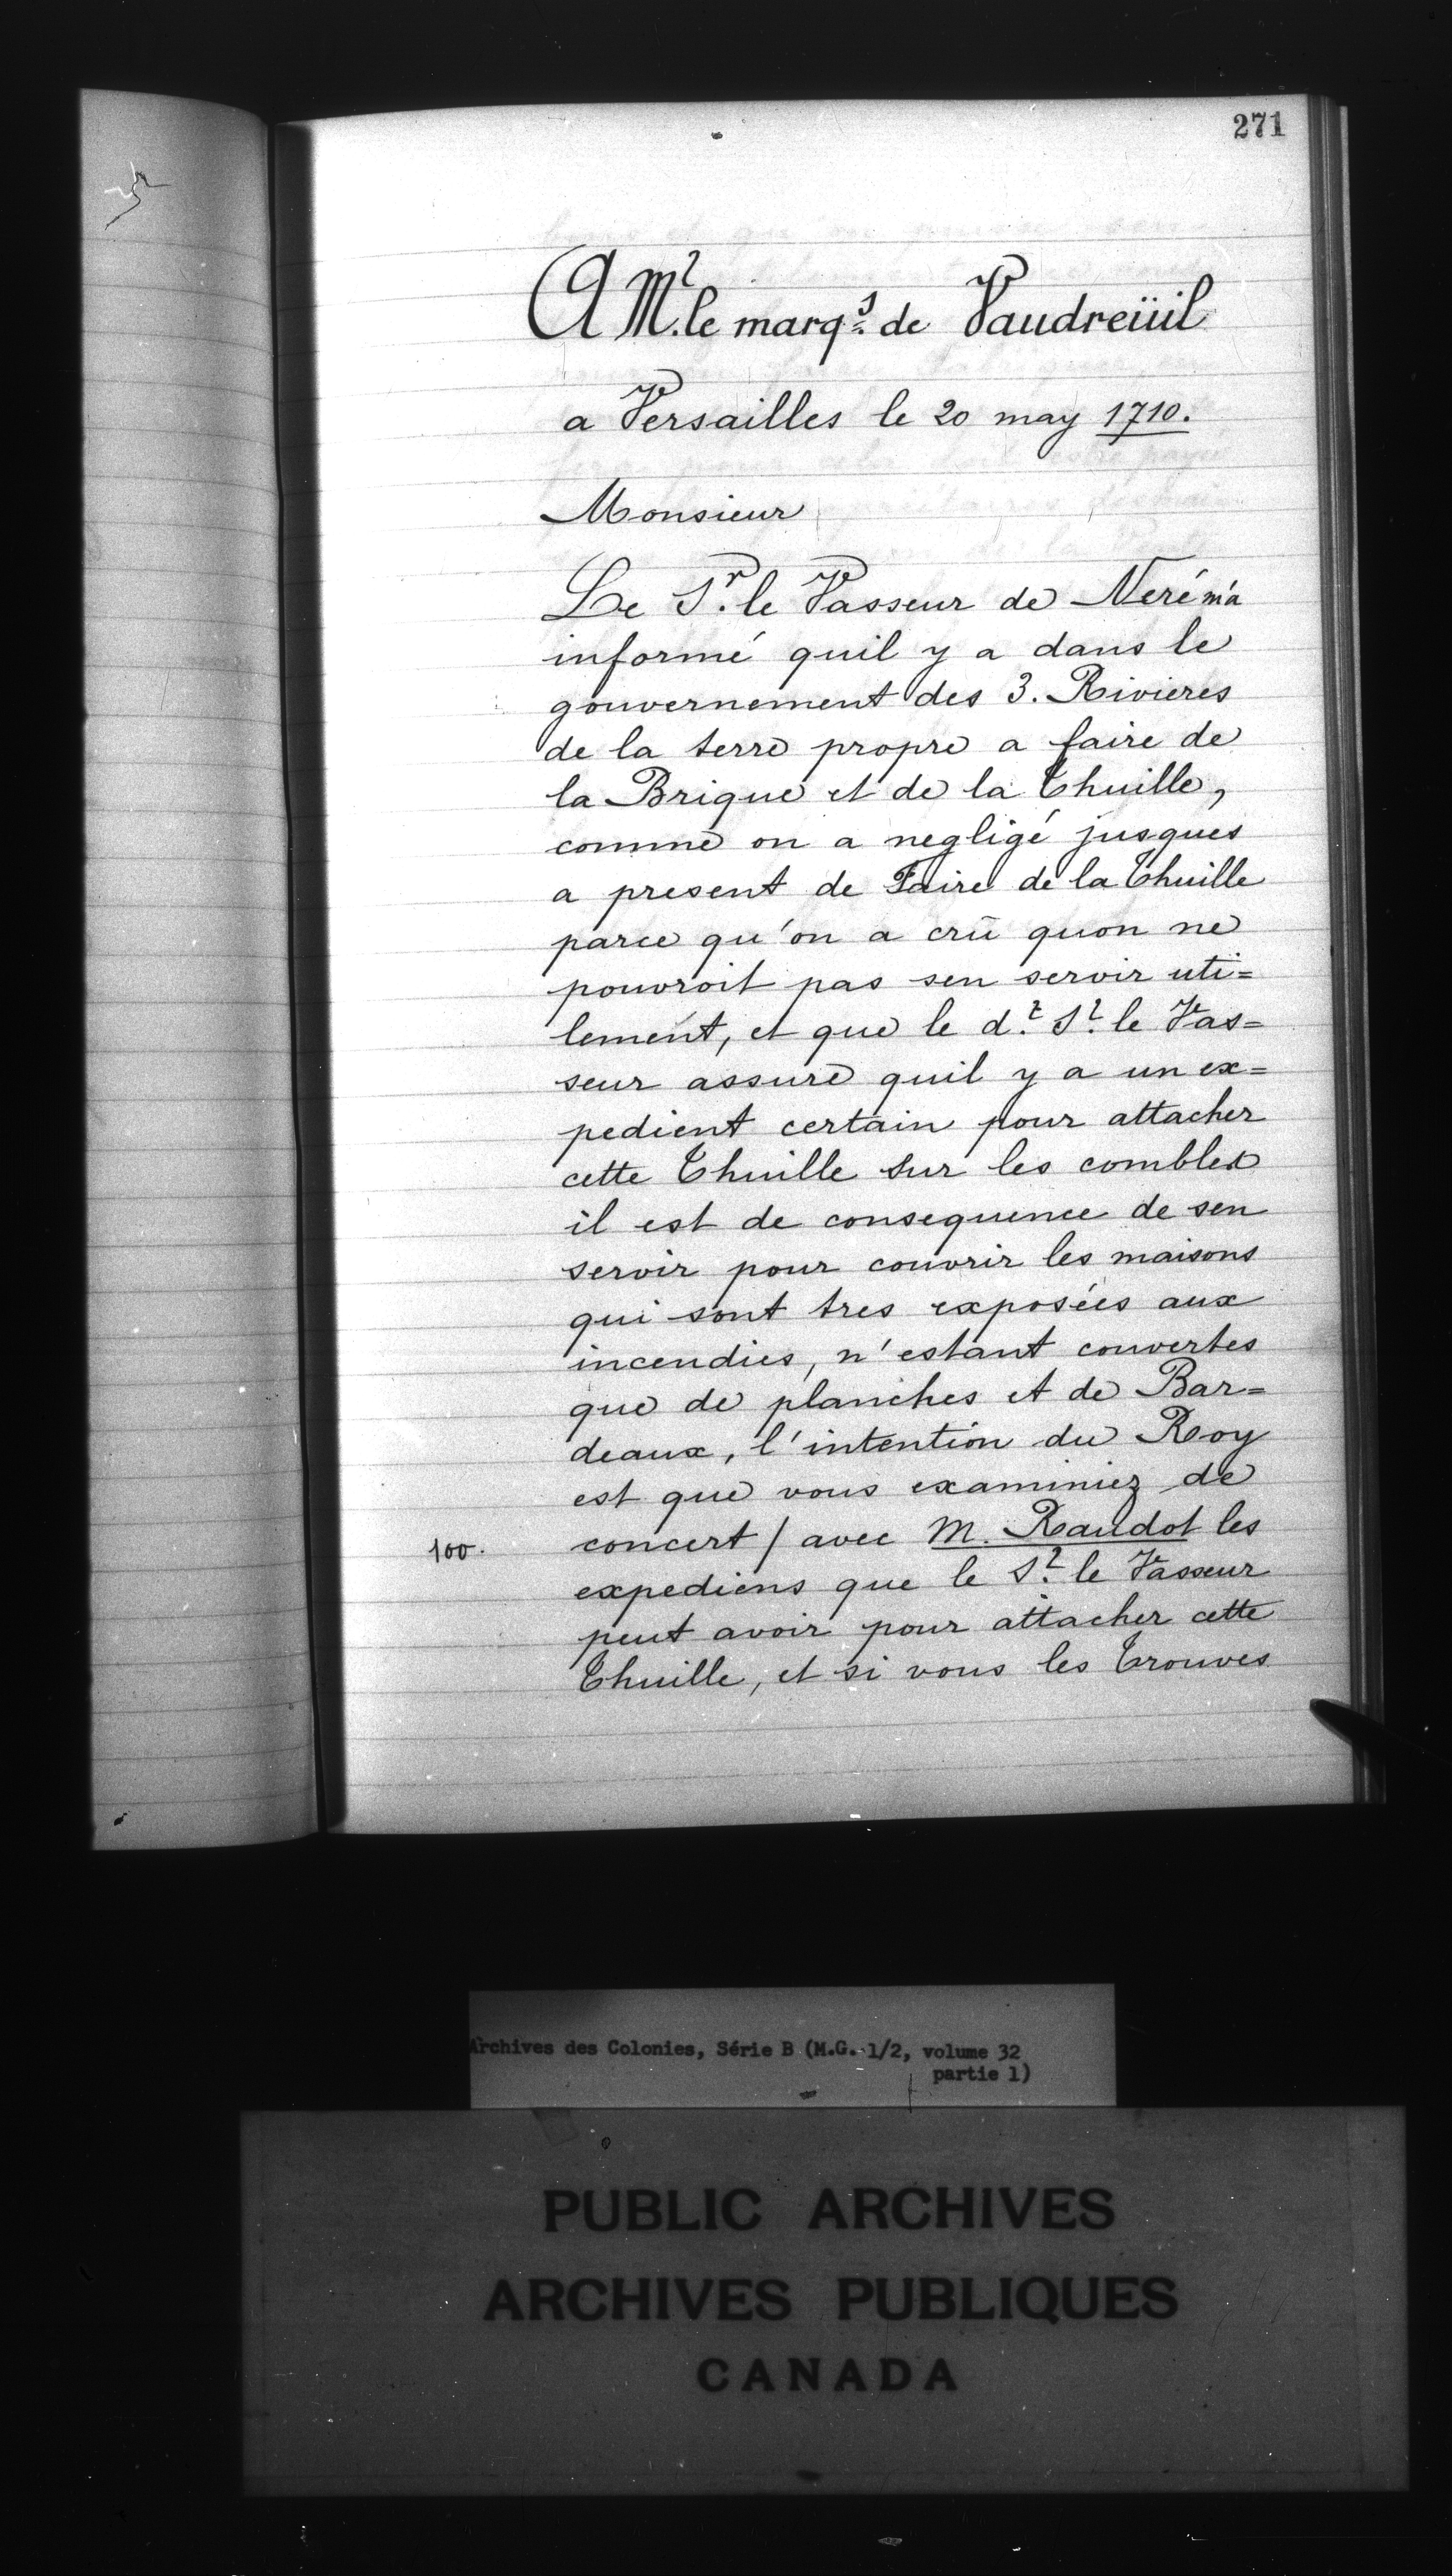 271
A Mr. le marqs. de Vaudreüil
a Versailles le 20 may 1710.
Monsieur
Le Sr. le Vasseur de Neré m'a
informé quil y a dans le
gouvernement des 3. Rivieres
de la terre propre a faire de
la Brique et de la Thuille,
comme on a negligé jusques
a present de Faire de la Thuille
parce qu'on a crû quon ne
pouvroit pas sen servir uti=
lement, et que le d.t Sr. le Vas=
seur assure quil y a un ex=
pedient certain pour attacher
cette Thuille sur les combles
il est de consequence de sen
servir pour couvrir les maisons
qui sont tres exposées aux
incendies, n'estant couvertes
que de planches et de Bar=
deaux, l'intention du Roy
est que vous examiniez de
100. concert / avec M. Raudot les
expediens que le Sr. le Vasseur
peut avoir pour attacher cette
Thuille, et si vous les trouves
Archives des Colonies, Série B (M.G. 1/2, volume 32
partie 1)
PUBLIC ARCHIVES
ARCHIVES PUBLIQUES
CANADA